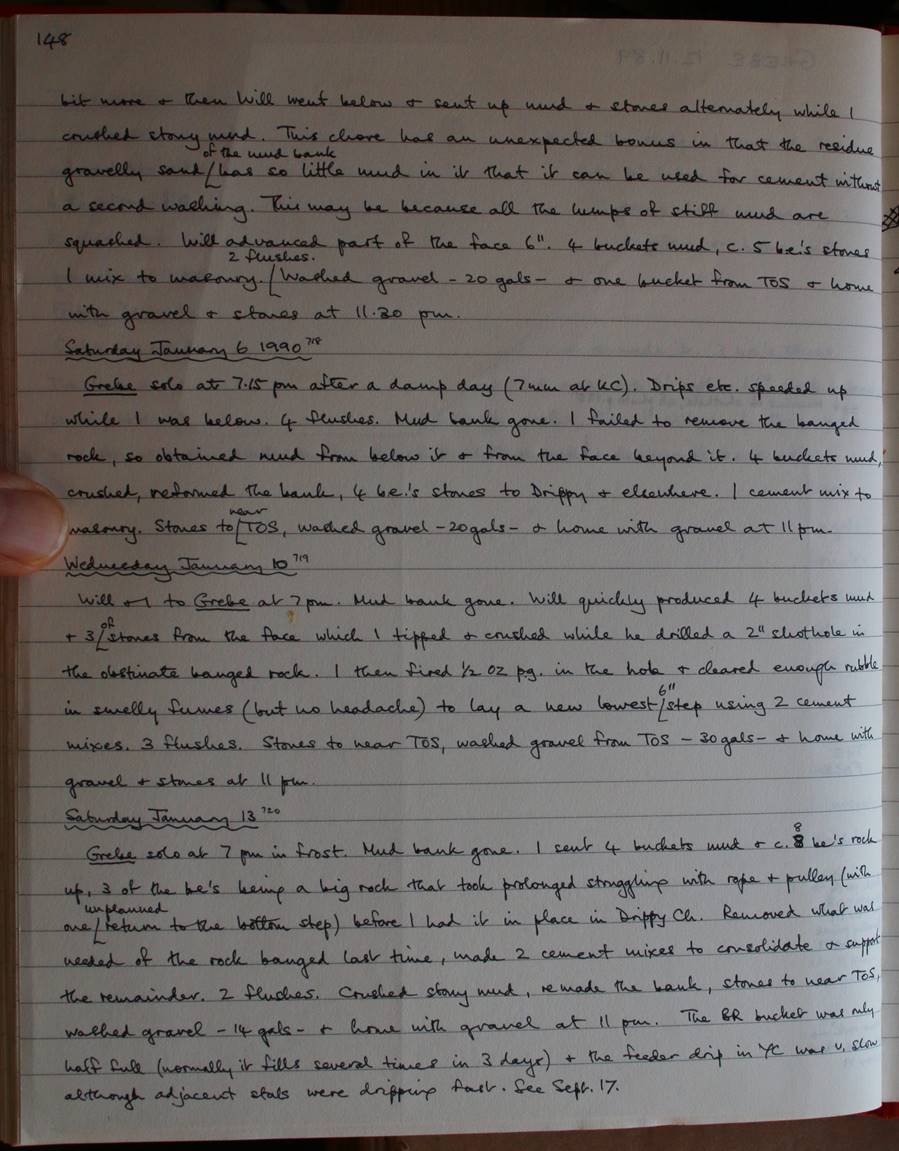 148
bit more + then Will went below + sent up mud + stones alternately while I
crushed stony mud. This chore has an unexpected bonus in that the residue
of the mud bank
gravelly sand [has so little mud in it that it can be used for cement without
a second washing. This may be because all the lumps of stiff mud are
squashed. Will advanced part of the face 6". 4 buckets mud, c. 5 be's stones
2 flushes.
1 mix to masonry. [Washed gravel - 20 gals - + one bucket from TOS + home
with gravel + stones at 11.30 pm.
Saturday January 6 1990 718
Grebe solo at 7.15 pm after a damp day (7mm at KC). Drips etc. speeded up
while I was below. 4 flushes. Mud bank gone. I failed to remove the banged
rock, so obtained mud from below it + from the face beyond it. 4 buckets mud,
crushed, reformed the bank, 4 be.'s stones to Drippy + elsewhere. 1 cement mix to
near
masonry. Stones to [TOS, washed gravel - 20 gals - + home with gravel at 11 pm.
Wednesday January 10 719
Will + I to Grebe at 7 pm. Mud bank gone. Will quickly produced 4 buckets mud
of
+ 3 [stones from the face which I tipped + crushed while he drilled a 2" shothole in
the obstinate banged rock. I then fired ½ oz p.g. in the hole + cleared enough rubble
6"
in smelly fumes (but no headache) to lay a new lowest [step using 2 cement
mixes. 3 flushes. Stones to near TOS, washed gravel from TOS - 30 gals - + home with
gravel + stones at 11 pm.
Saturday January 13 720
8
Grebe solo at 7 pm in frost. Mud bank gone. I sent 4 buckets mud + c. 8 be's rock
up, 3 of the be's being a big rock that took prolonged struggling with rope + pulley (with
unplanned
one [return to the bottom step) before I had it in place in Drippy Ch. Removed what was
needed of the rock banged last time, made 2 cement mixes to consolidate + support
the remainder. 2 flushes. Crushed stony mud, remade the bank, stones to near TOS,
washed gravel - 14 gals - + home with gravel at 11 pm. The BR bucket was only
half full (normally it fills several times in 3 days) + the feeder drip in YC was v. slow
although adjacent stals were dripping fast. See Sept. 17.